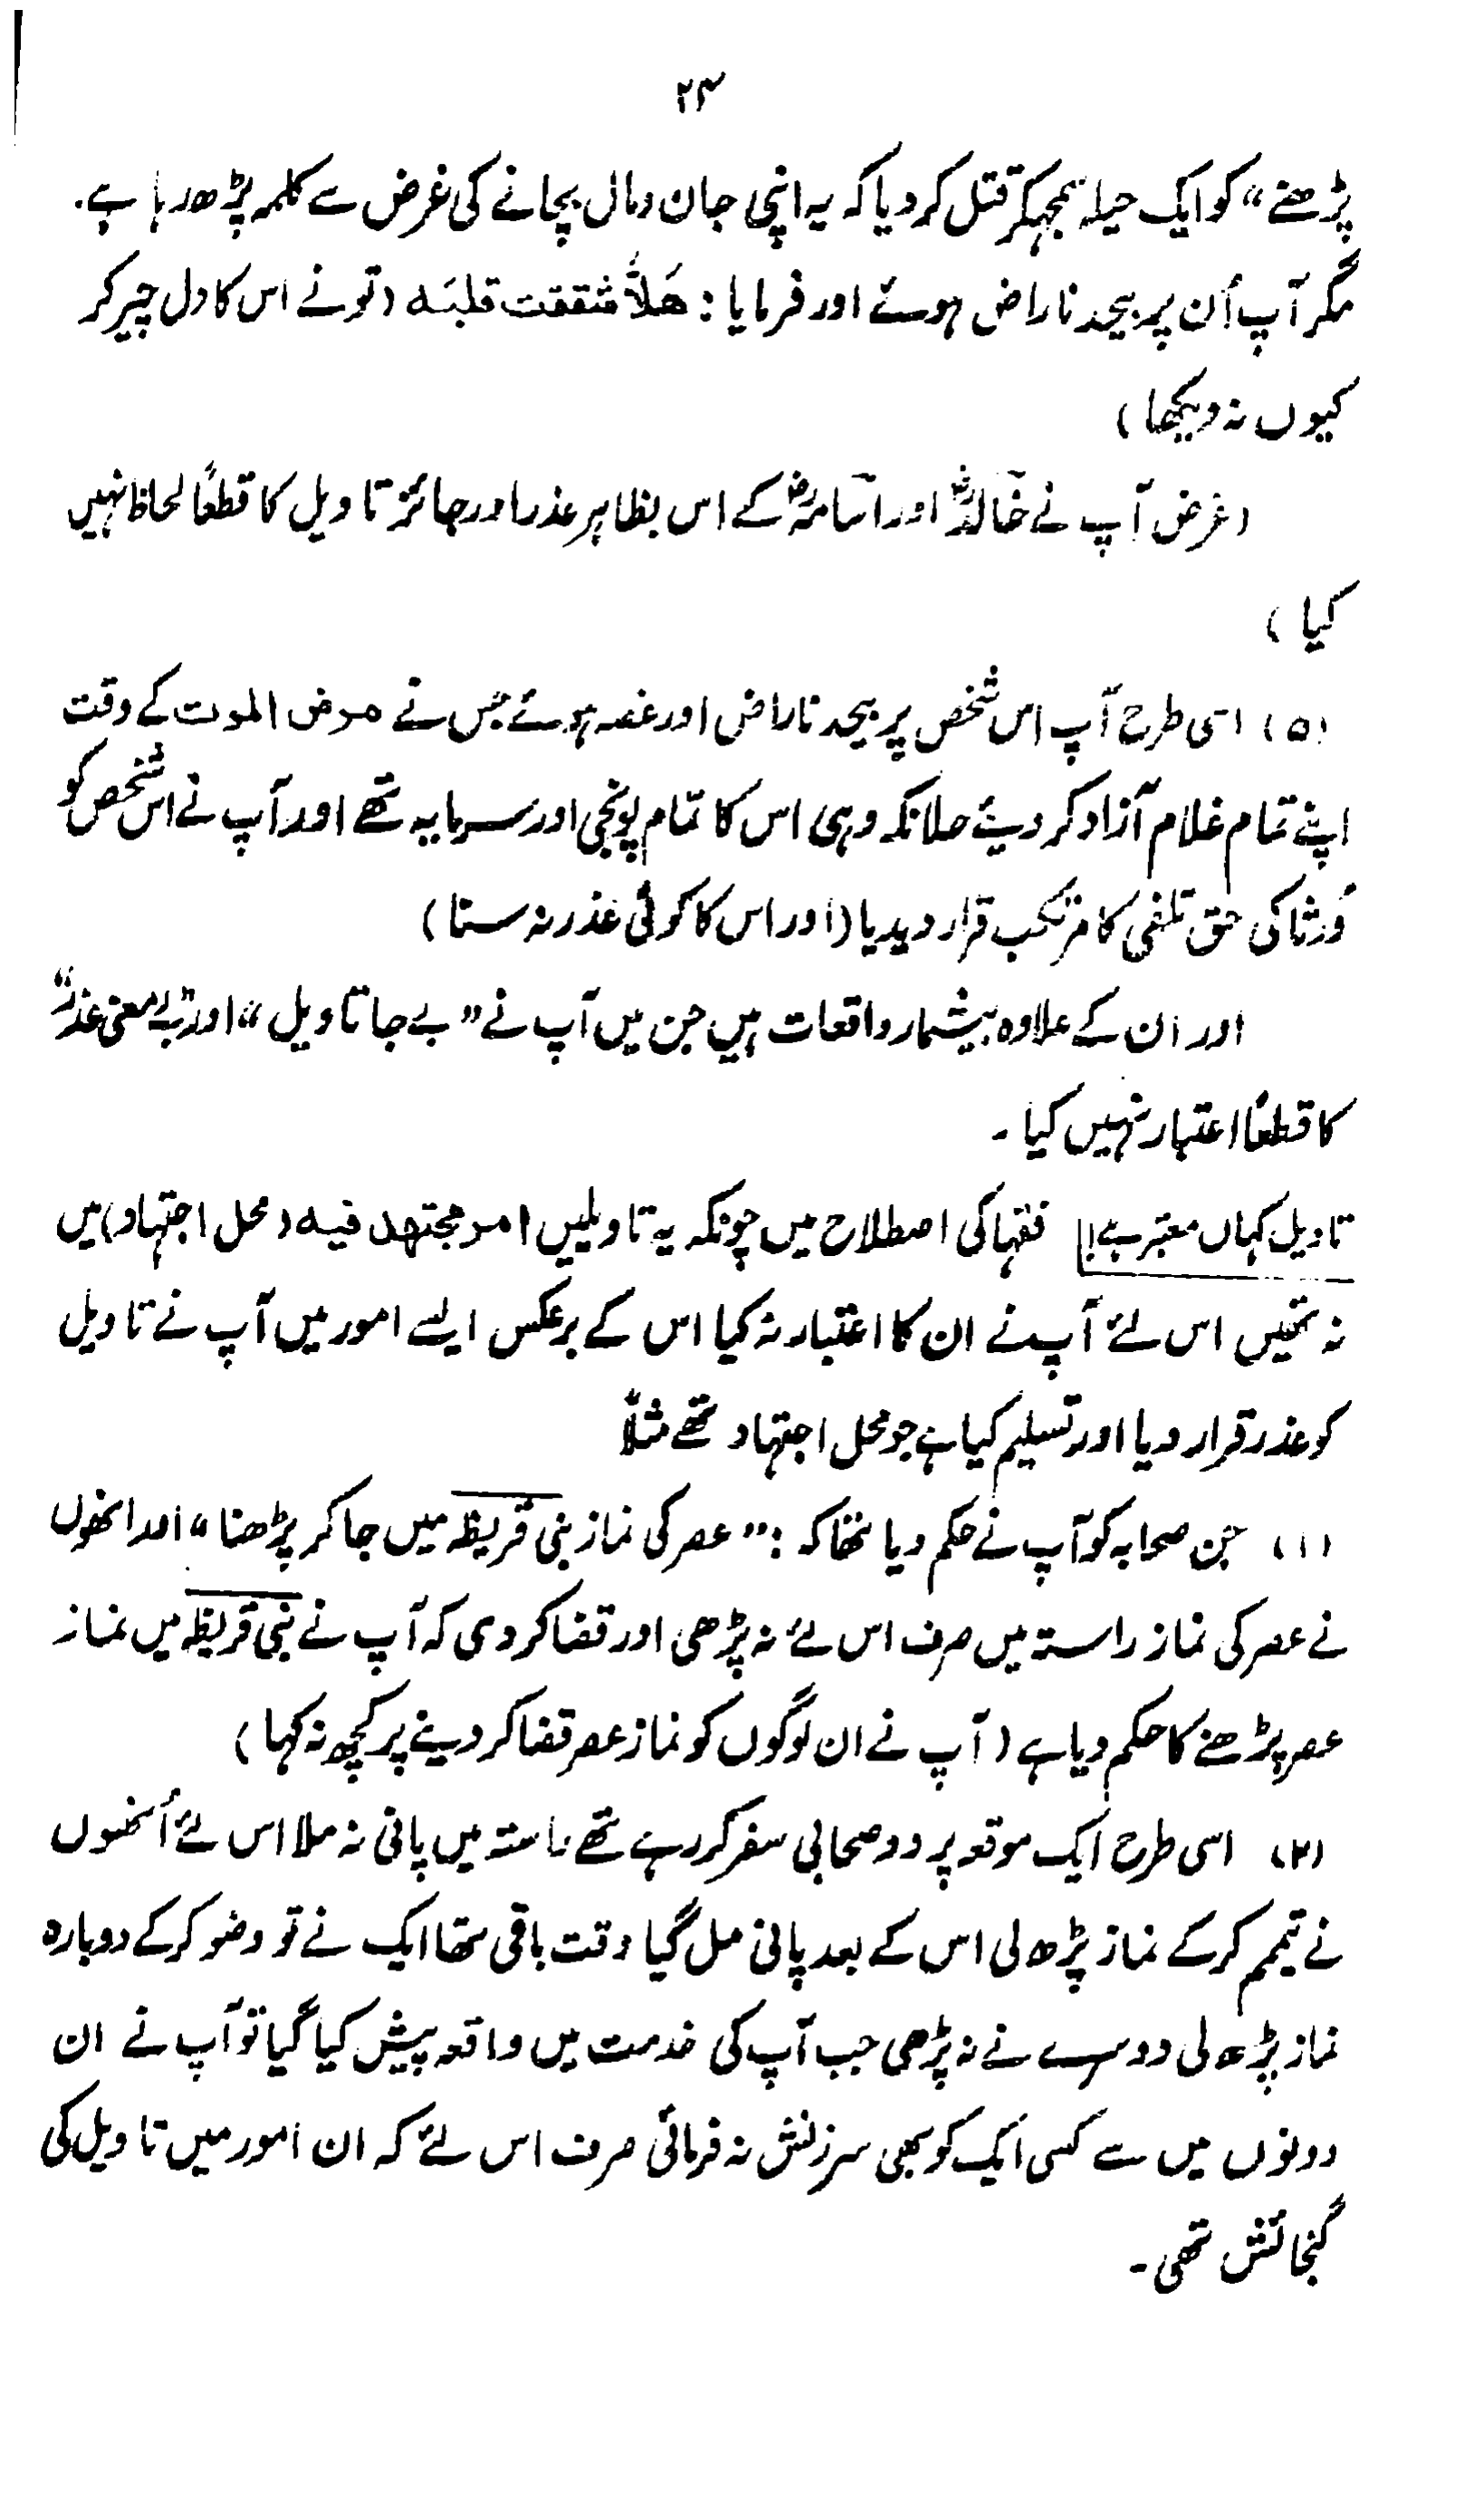 ۲۳
پڑھنے“ کو ایک حیلہ سمجھکر قتل کر دیا کہ یہ اپنی جان و مال بچانے کی غرض سے کلمہ پڑھ رہا ہے.
مگر آپ اُن پر بیحد ناراض ہوئے اور فرمایا: هَلاَّ شققت قلبَه (تو نے اس کا دل چیر کر
کیوں نہ دیکھا)
(غرض آپ نے خالدؓ اور اسامہؓ کے اس بظاہر عذر اور جائز تاویل کا قطعًا لحاظ نہیں
کیا)
(۵) اسی طرح آپ اس شخص پر بیحد ناراض اور غصہ ہوئے جس نے مرض الموت کے وقت
اپنے تمام غلام آزاد کر دیئے حلانکہ وہی اس کا تمام پونجی اور سرمایہ تھے اور آپ نے اس شخص کو
وُرثا کی حق تلفی کا مرتکب قرار دیدیا (اور اس کا کوئی عذر نہ سنا)
اور ان کے علاوہ بیشمار واقعات ہیں جن میں آپ نے ”بے جا تاویل“ اور ”بے معنی عذر“
کا قطعًا اعتبار نہیں کیا۔
تاویل کہاں معتبر ہے! فقہا کی اصطلاح میں چونکہ یہ تاویلیں امر مجتهد فيه (محل اجتہاد) میں
نہ تھیں اس لئے آپ نے ان کا اعتبار نہ کیا اس کے برعکس ایسے امور میں آپ نے تاویل
کو عذر قرار دیا اور تسلیم کیا ہے جو محل اجتہاد تھے مثلاً
(۱) جن صحابہ کو آپ نے حکم دیا تھا کہ: ”عصر کی نماز بنی قریظہ میں جا کر پڑھنا“ اور انھوں
نے عصر کی نماز راستہ میں صرف اس لئے نہ پڑھی اور قضا کر دی کہ آپ نے بنی قریظہ میں نماز
عصر پڑھنے کا حکم دیا ہے (آپ نے ان لوگوں کو نماز عصر قضا کر دینے پر کچھ نہ کہا)
(۲) اسی طرح ایک موقعہ پر دو صحابی سفر کر رہے تھے راستہ میں پانی نہ ملا اس لئے اُنھوں
نے تیمم کر کے نماز پڑھ لی اس کے بعد پانی مل گیا وقت باقی تھا ایک نے تو وضو کر کے دوبارہ
نماز پڑھ لی دوسرے نے نہ پڑھی جب آپ کی خدمت میں واقعہ پیش کیا گیا تو آپ نے ان
دونوں میں سے کسی ایک کو بھی سرزنش نہ فرمائی صرف اس لئے کہ ان امور میں تاویل کی
گنجائش تھی۔